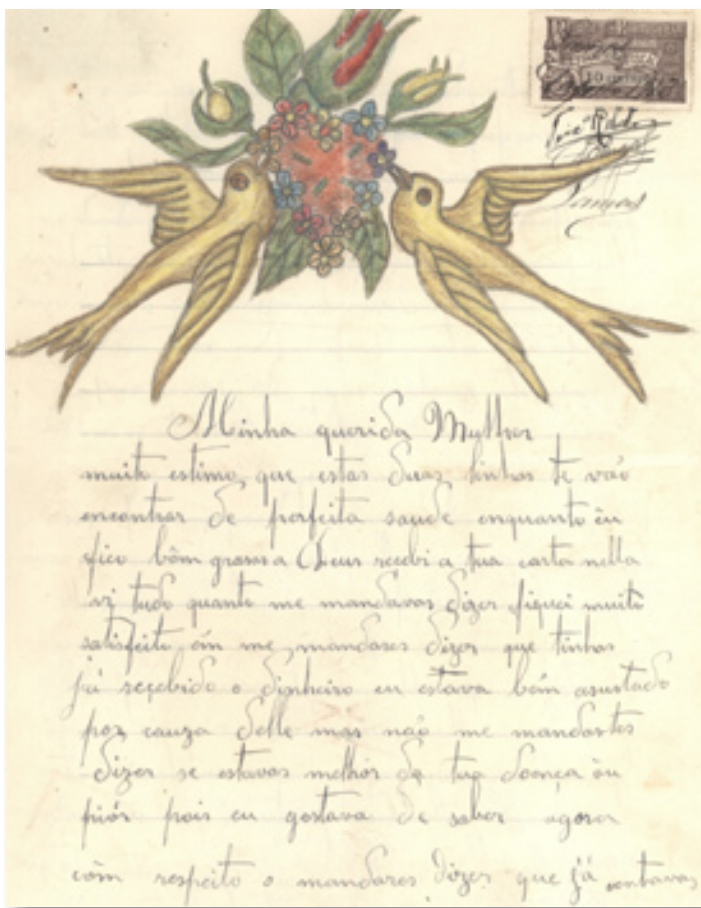 Minha querida Mulher
muito estimo que estas duas linhas te vão
encontrar de perfeita saude enquanto êu
fico bôm grassa a Deus recebi a tua carta nella
vi tudo quanto me mandavas dizer fiquei muito
satisfeito êm me mandares dizer que tinhas
já reçebido o dinheiro eu estava bem asustado
por cauza delle mas não me mandastes
dizer se estavas melhór da tua doença ôu
piór pois eu gostava de saber agora
côm respeito o mandares dizer que já contavas